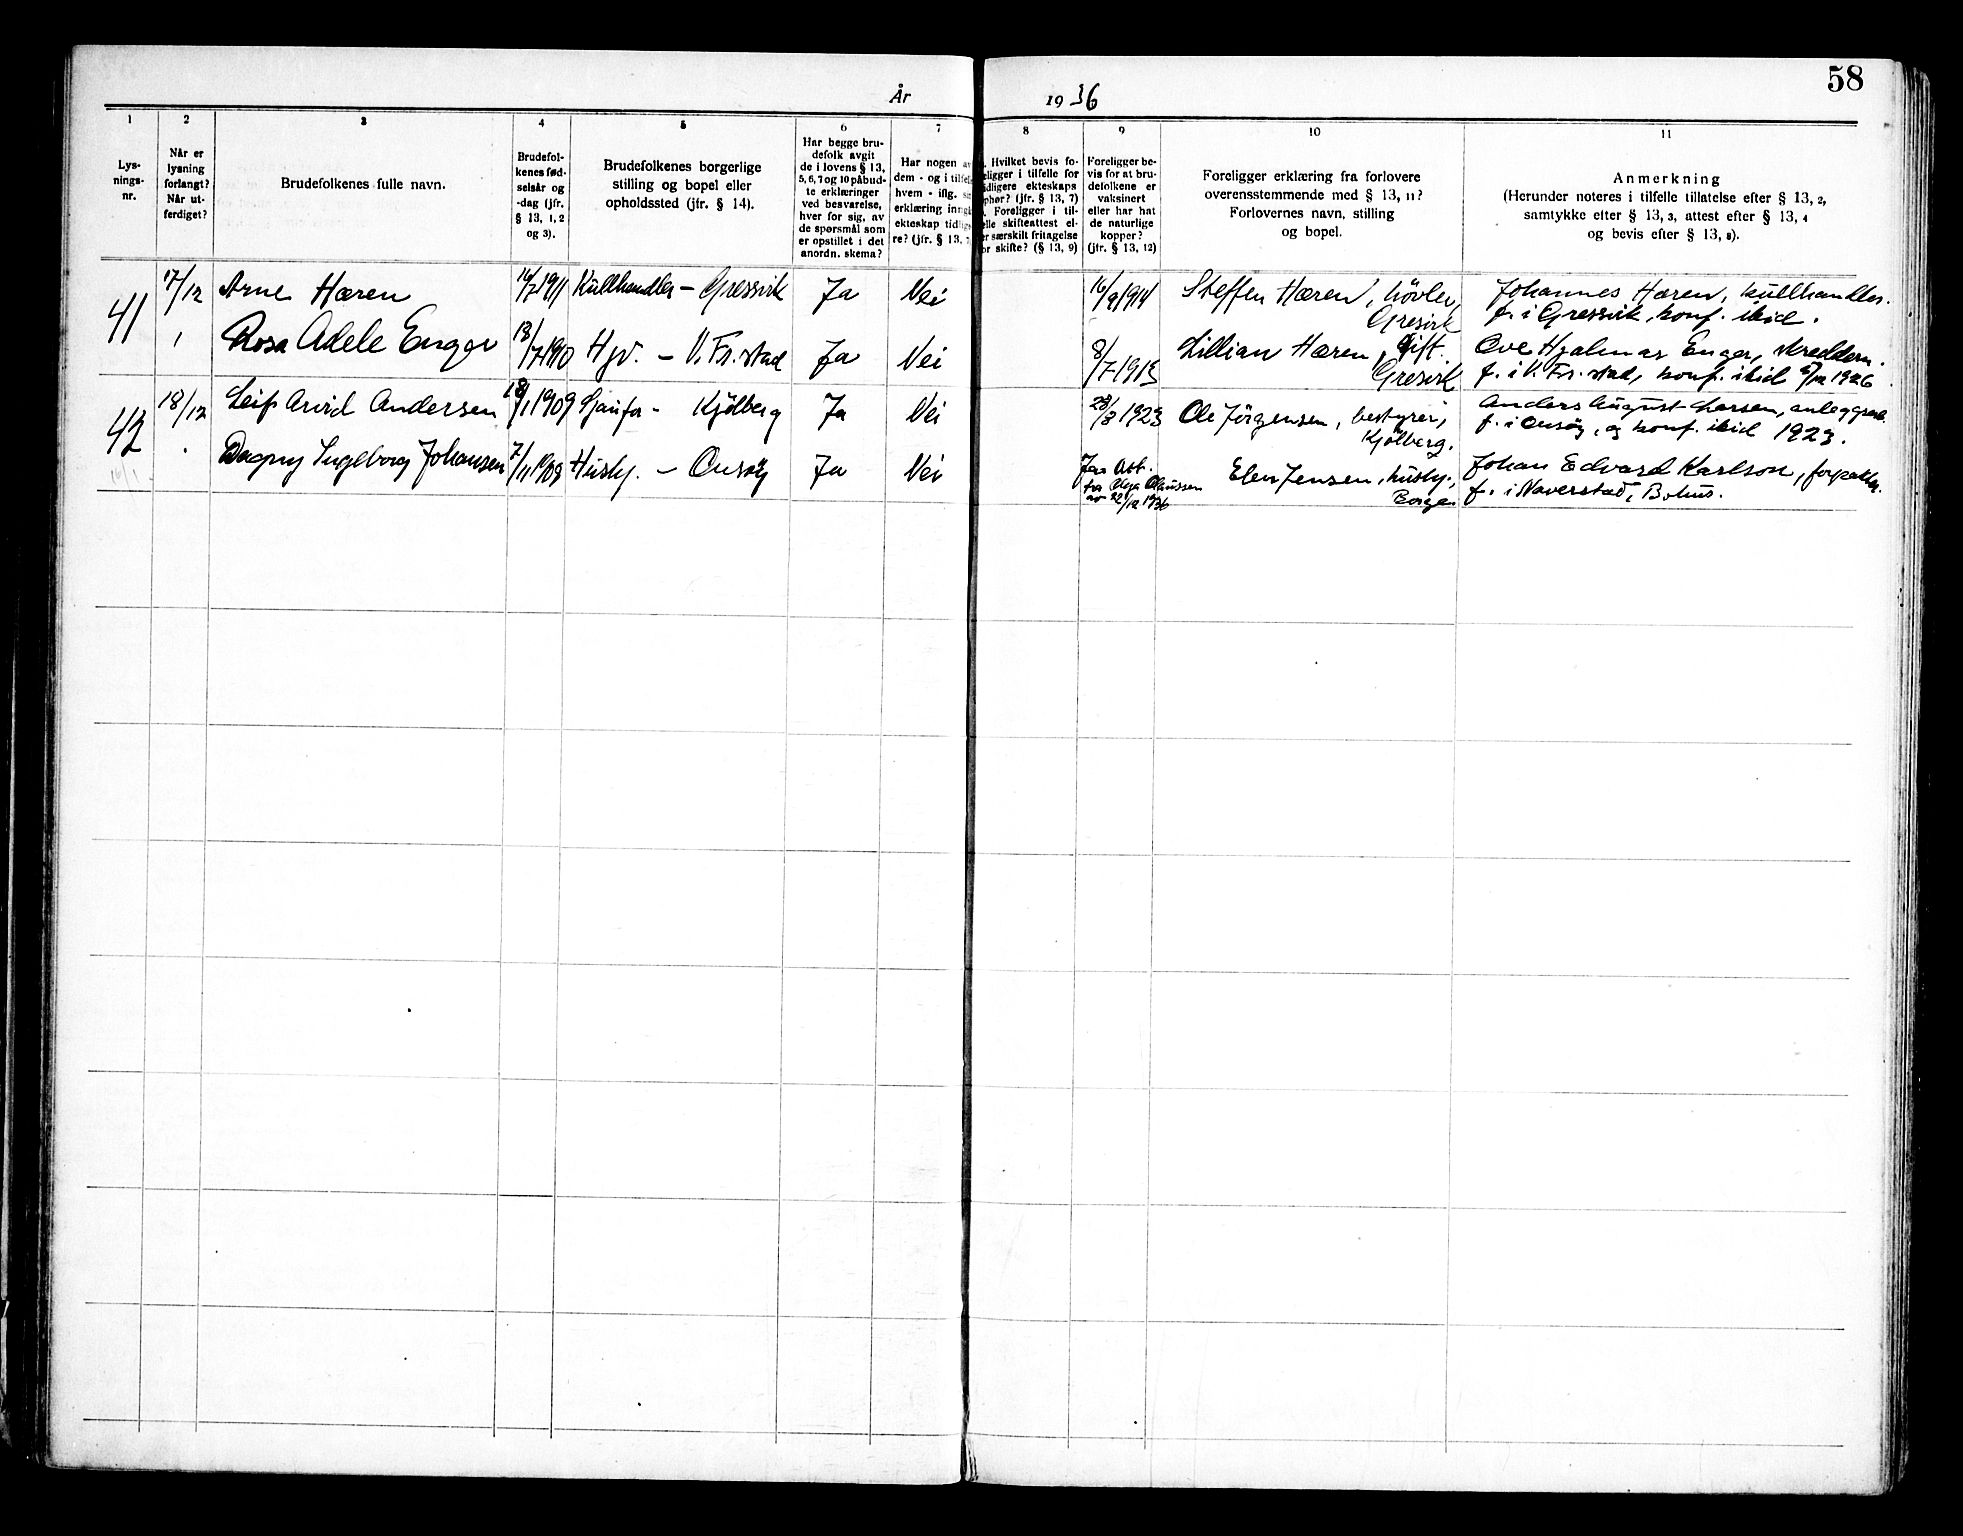 58
År 1936
1 2 3 4 5 6 7 8 9 10 11
Lys-
nings-
nr.
Når er
lysning
forlangt?
Når ut-
ferdiget?
Brudefolkenes fulle navn.
Brudefol-
kenes fød-
selsår og
-dag (jfr.
§ 13, 1, 2
og 3).
Brudefolkenes borgerlige
stilling og bopel eller
opholdssted (jfr. § 14).
Har begge bru-
defolk avgit
de i lovens § 13,
5, 6, 7 og 10 påbud-
te erklæringer
ved besvarelse,
hver for sig, av
de spørsmål som
er opstillet i det
anordn. skema?
Har nogen av
dem - og i tilfelle
hvem - iflg. si
erklæring inng
ekteskap tidlig
re? (jfr. § 13,
. Hvilket bevis fo-
eligger i tilfelle for
idligere ekteskaps
phør? (jfr. § 13, 7)
. Foreligger i til-
elle skifteattest el-
er særskilt fritagelse
or skifte? (§ 13, 9)
Foreligger be-
vis for at bru-
defolkene er
vaksinert
eller har hat
de naturlige
kopper?
(jfr. § 13, 12)
Foreligger erklæring fra forlovere
overensstemmende med § 13, 11?
Forlovernes navn, stilling
og bopel.
Anmerkning
(Herunder noteres i tilfelle tillatelse efter § 13, 2,
samtykke efter § 13, 3, attest efter § 13, 4
og bevis efter § 13, 8).
41 17/12 Arne Hæren 14/7 1911 Kullhandler - Gressvik Ja Nei 16/9 1914 Steffen Hæren, hövler, Gresvik
Johannes Hæren, kullhandler.
f. i Gressvik, konf. ibid.
Rosa Adele Enger 13/7 1910 Hjv. - V. Fr.stad Ja Nei 8/7 1913 Lillian Hæren, Gift. Gresvik
Ove Hjalmar Enger, skreddern.
f. i V. Fr.stad, konf. ibid 5/12 1926.
42 18/12 Leif Arvid Andersen 18/1 1909 Sjaufør - Kjölberg Ja Nei 23/3 1923 Ole Jörgensen, bestyrer, Kjölberg.
Anders August Larsen, anleggsarb.
f. i Onsöy, og konf. ibid 1923.
16/1 Dagny Ingeborg Johansen 7/11 1908 Hush. - Onsöy Ja Nei
Ja, Att.
fra Olga Olaussen
av 22/12 1936
Elen Jensen, hush., Borge.
Johan Edvard Karlson, forpakter.
f. i Naverstad, Bohus.